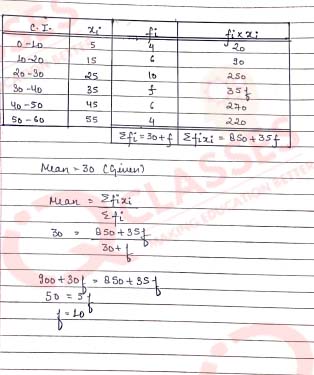 C.I. xi fi fi × xi
0-10 5 4 20
10-20 15 6 90
20-30 25 10 250
30-40 35 f 35f
40-50 45 6 270
50-60 55 4 220
Σfi = 30+f Σfixi = 850+35f
Mean = 30 (Given)
Mean = Σfixi
Σfi
30 = 850+35f
30+f
900+30f = 850+35f
50 = 5f
f = 10
CLASSES
MAKING EDUCATION BETTER